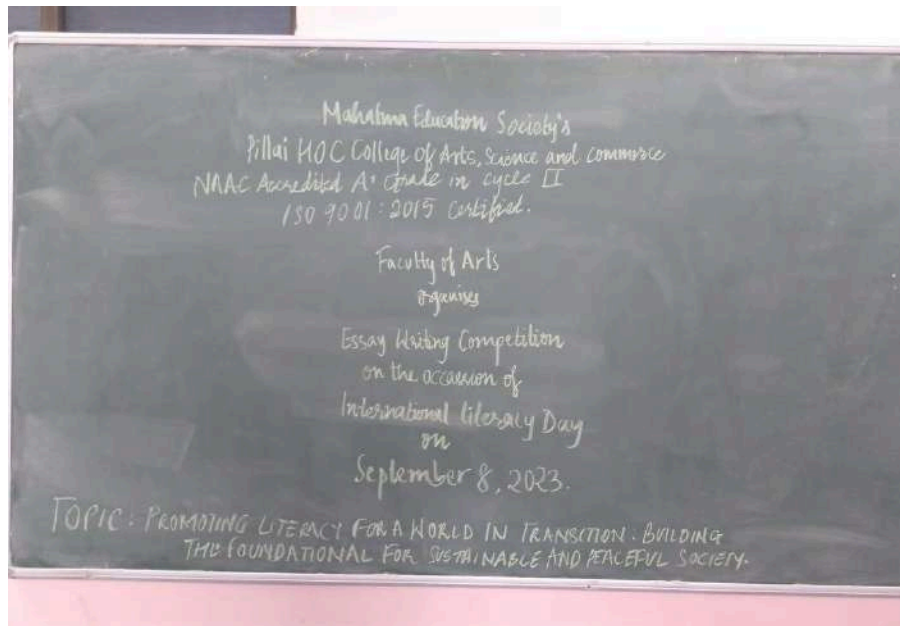 Mahatma Education Society's
Pillai HOC College of Arts, Science and commerce
NAAC Accredited A+ Grade in cycle II
ISO 9001:2015 Certified.
Faculty of Arts
organises
Essay Writing Competition
on the occassion of
International literacy Day
on
September 8, 2023.
TOPIC: PROMOTING LITERACY FOR A WORLD IN TRANSITION: BUILDING
THE FOUNDATIONAL FOR SUSTAINABLE AND PEACEFUL SOCIETY.